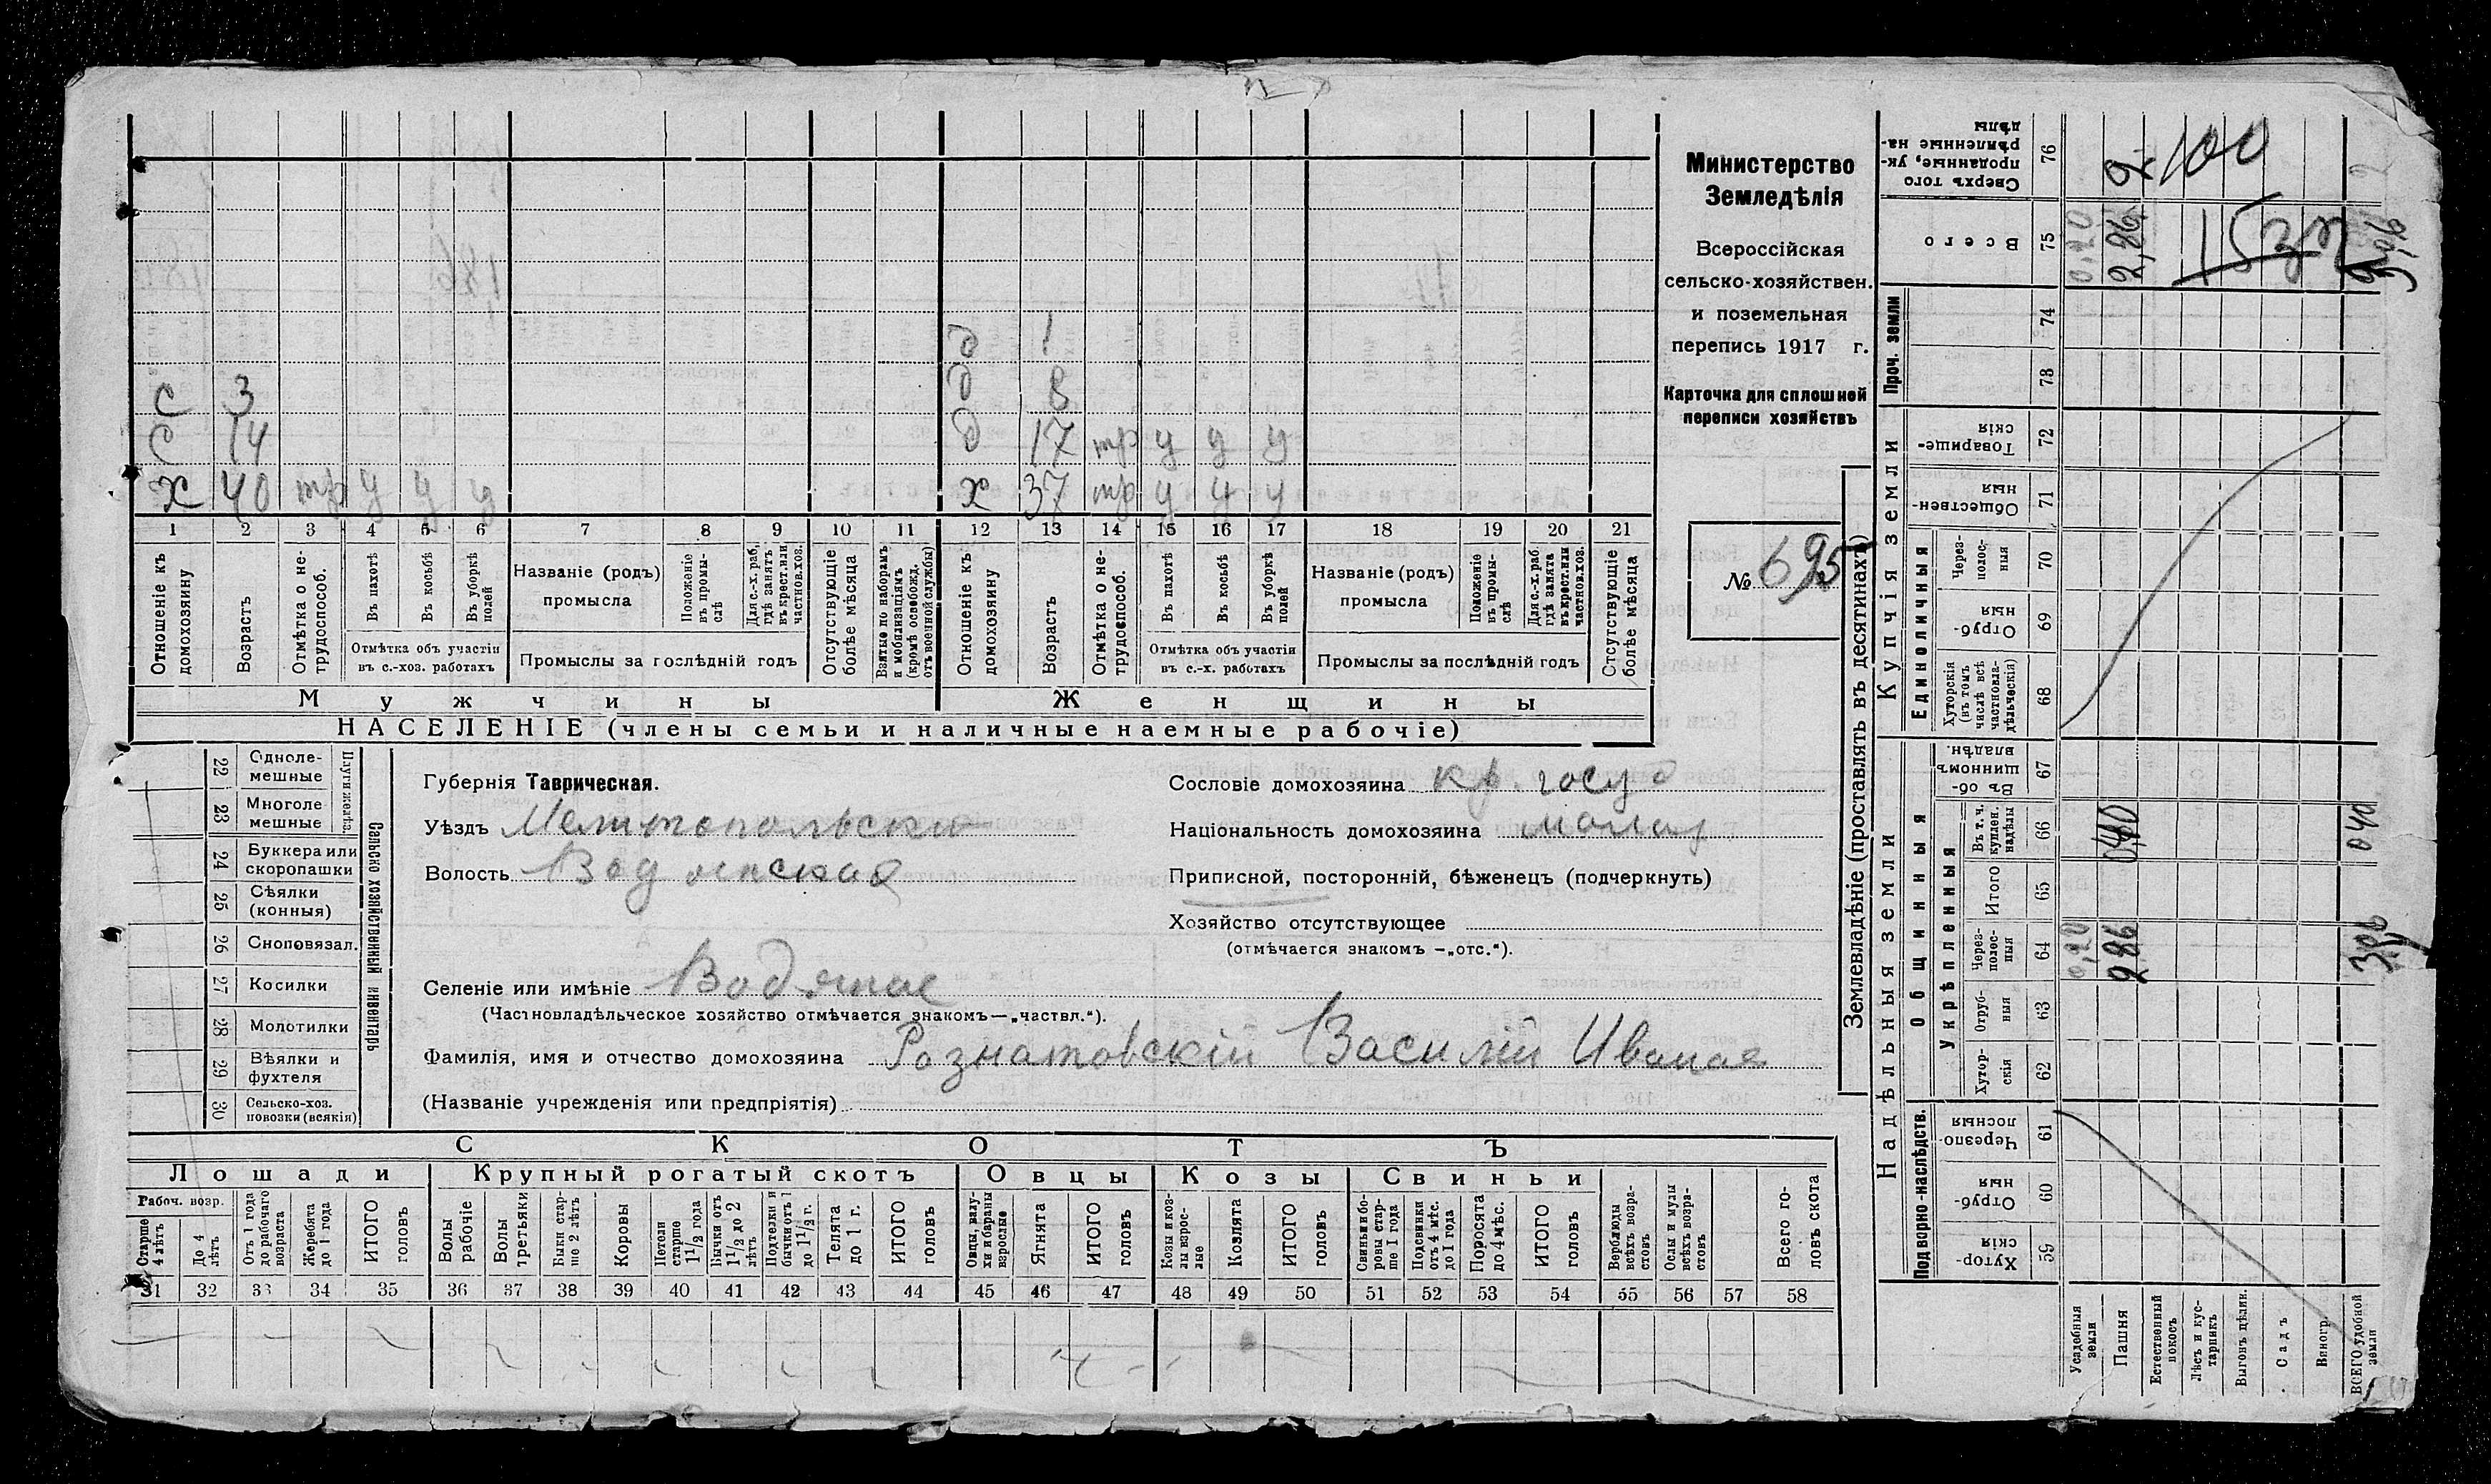 Министерство
Земледѣлія
Всероссійская
сельско-хозяйствен.
и поземельная
перепись 1917 г.
Карточка для сплошной
переписи хозяйствъ
№ 695
С 3
С 14
Х 40 тр у у у
д 1
д 8
д 17 тр у у у
х 37 тр у у у
1 2 3 4 5 6 7 8 9 10 11 12 13 14 15 16 17 18 19 20 21
Отношеніе къ домохозяину
Возрастъ
Отмѣтка о не-трудоспособ.
Въ пахотѣ
Въ косьбѣ
Въ уборкѣ полей
Отмѣтка объ участіи
въ с.-хоз. работахъ
Названіе (родъ)
промысла
Положеніе въ промы-слѣ
Для с.-х. раб. гдѣ занятъ въ крест. или частнов. хоз.
Промыслы за послѣдній годъ
Отсутствующіе болѣе мѣсяца
Взятые по наборамъ и мобилизаціямъ (кромѣ освобожд. отъ военной службы)
Отношеніе къ домохозяину
Возрастъ
Отмѣтка о не-трудоспособ.
Въ пахотѣ
Въ косьбѣ
Въ уборкѣ полей
Отмѣтка объ участіи
въ с.-х. работахъ
Названіе (родъ)
промысла
Положеніе въ промы-слѣ
Для с.-х. раб. гдѣ занята въ крест. или частнов. хоз.
Промыслы за послѣдній годъ
Отсутствующіе болѣе мѣсяца
Мужчины
Женщины
НАСЕЛЕНІЕ (члены семьи и наличные наемные рабочіе)
22 Одноле-мешные
23 Многоле мешные
Плуги желѣз.
24 Буккера или скоропашки
25 Сѣялки (конныя)
26 Сноповязал.
27 Косилки
28 Молотилки
29 Вѣялки и фухтеля
30 Сельско-хоз. повозки (всякія)
Сельско хозяйственный инвентарь
Губернія Таврическая.
Уѣздъ Мелитопольски
Волость Водянская
Селеніе или имѣніе Водяное
(Частновладѣльческое хозяйство отмѣчается знакомъ—„частвл.“).
Фамилія, имя и отчество домохозяина Рознатовскій Василій Иванов
(Названіе учрежденія или предпріятія)
Сословіе домохозяина кр. госуд
Національность домохозяина малор
Приписной, посторонній, бѣженецъ (подчеркнуть)
Хозяйство отсутствующее
(отмѣчается знакомъ —„отс.“).
СКОТЪ
Лошади Крупный рогатый скотъ Овцы Козы Свиньи
Рабоч. возр.
Старше 4 лѣтъ
До 4 лѣтъ
Отъ 1 года до рабочаго возраста
Жеребята до 1 года
ИТОГО головъ
Волы рабочіе
Волы третьяки
Быки стар-ше 2 лѣтъ
Коровы
Нетели старше 1 1/2 года
Бычки отъ 1 1/2 до 2 лѣтъ
Подтелки и бычки отъ 1 до 1 1/2 г.
Телята до 1 г.
ИТОГО головъ
Овцы, валу-хи и бараны взрослые
Ягнята
ИТОГО головъ
Козы и коз-лы взрос-лые
Козлята
ИТОГО головъ
Свиньи и бо-ровы стар-ше 1 года
Подсвинки отъ 4 мѣс. до 1 года
Поросята до 4 мѣс.
ИТОГО головъ
Верблюды всѣхъ возра-стовъ
Ослы и мулы всѣхъ возра-стовъ
Всего го-ловъ скота
31 32 33 34 35 36 37 38 39 40 41 42 43 44 45 46 47 48 49 50 51 52 53 54 55 56 57 58
Землевладѣніе (проставлять въ десятинахъ)
Надѣльныя земли
Купчія земли
Проч. земли
Подворно-наслѣдств.
Общинныя
Укрѣпленныя
Единоличныя
Сверхъ того проданные, ук-рѣпленные на-дѣлы 76
Всего 75 0,20 2,86
74
73
Товарище-скія 72
Обществен-ныя 71
Через-полос-ныя 70
Отруб-ныя 69
Хуторскія (въ томъ числѣ всѣ частновла-дѣльческія) 68
Въ об-щинномъ владѣн. 67
Въ т. ч. куплен. надѣлы 66 0,40 040
Итого 65
Через-полос-ныя 64 0,20 2 86 3,06
Отруб-ныя 63
Хутор-скія 62
Черезпо-лосныя 61
Отруб-ныя 60
Хутор-скія 59
Усадебныя земли
Пашня
Естественный покосъ
Лѣсъ и кус-тарникъ
Выгонъ цѣлин.
Садъ
Виногр.
ВСЕГО удобной земли
100